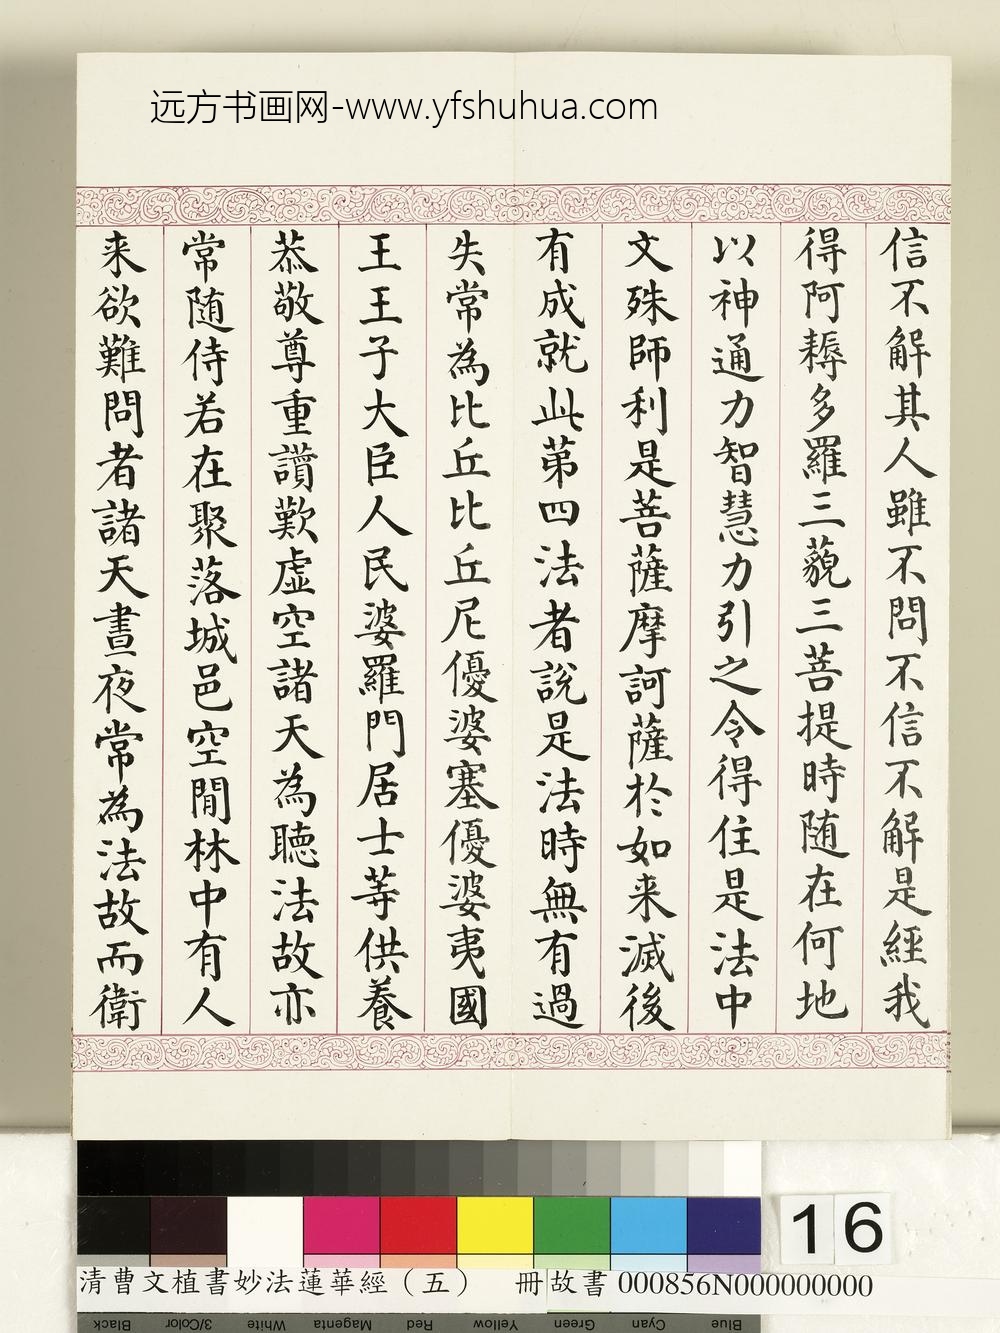 远方书画网-www.yfshuhua.com
信不解其人雖不問不信不解是經我
得阿耨多羅三藐三菩提時随在何地
以神通力智慧力引之令得住是法中
文殊師利是菩薩摩訶薩於如来滅後
有成就此第四法者說是法時無有過
失常為比丘比丘尼優婆塞優婆夷國
王王子大臣人民婆羅門居士等供養
恭敬尊重讚歎虛空諸天為聽法故亦
常随侍若在聚落城邑空閒林中有人
来欲難問者諸天晝夜常為法故而衛
16
清曹文植書妙法蓮華經（五） 冊 故書 000856N000000000
Black 3/Color White Magenta Red Yellow Green Cyan Blue